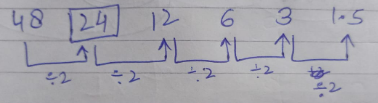 48 24 12 6 3 1.5
÷2 ÷2 ÷2 ÷2 ÷2